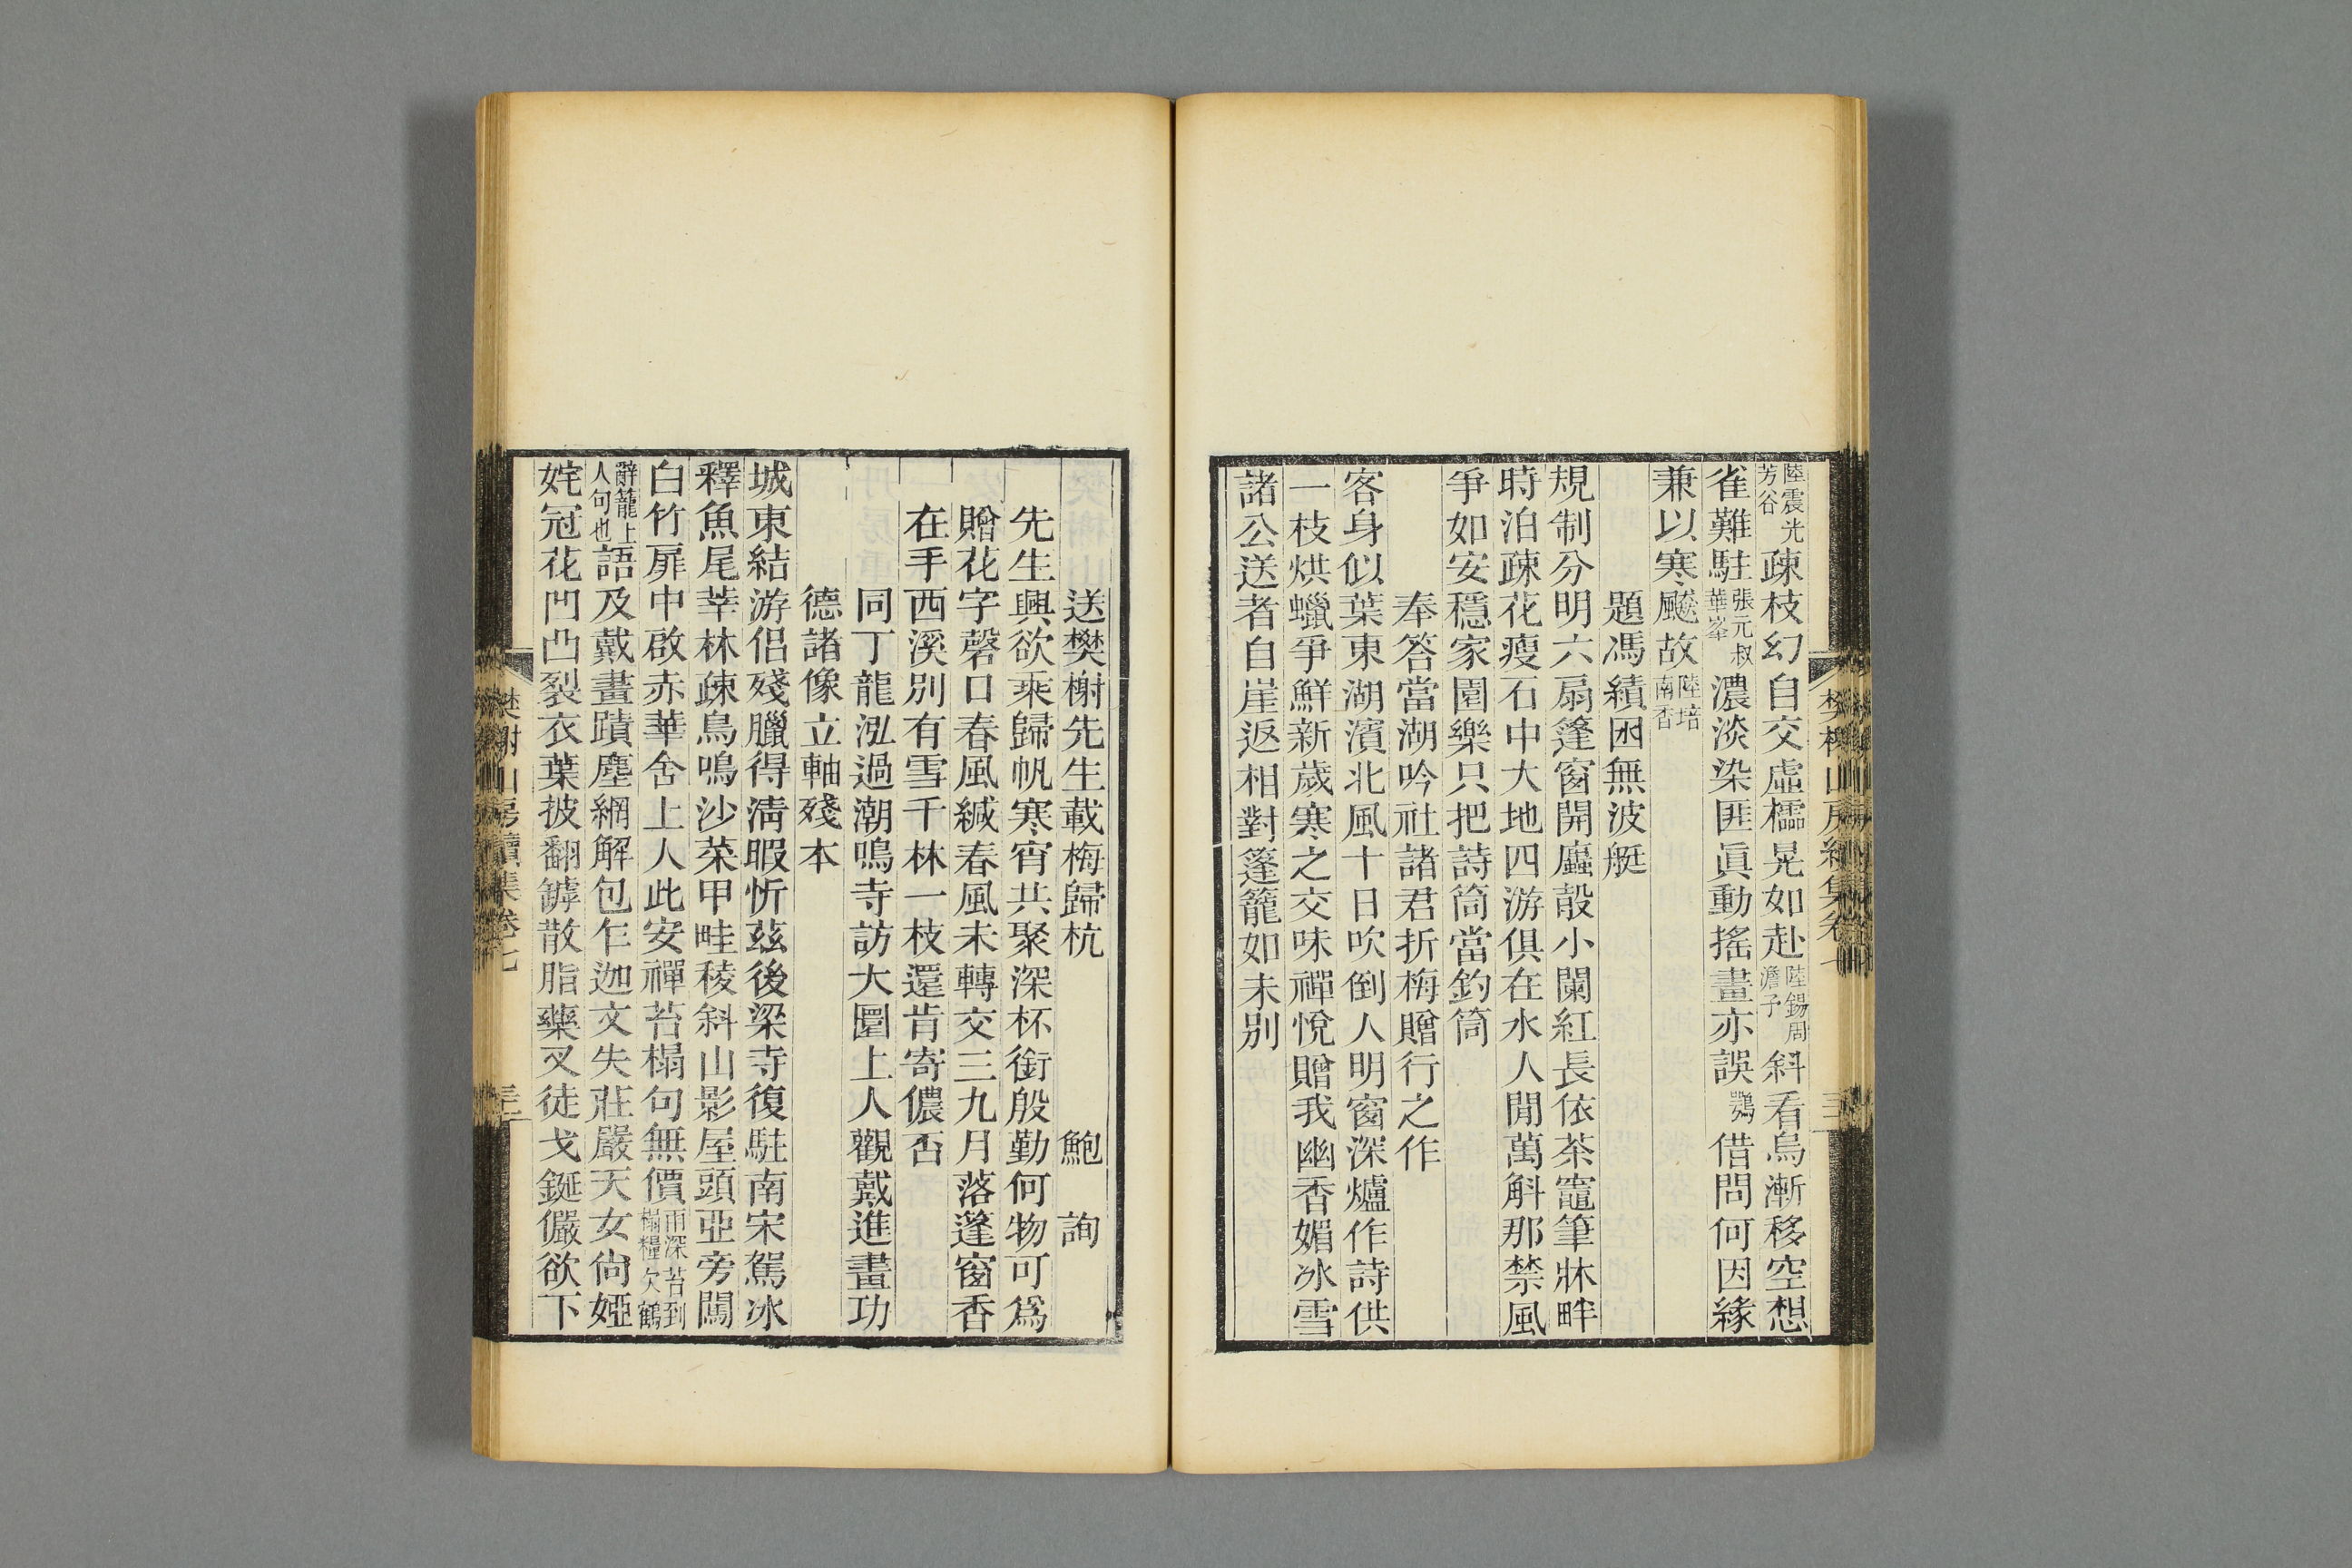 樊榭山房續集卷七
陸震光芳谷疎枝幻自交虛櫺晃如赴陸錫周澹子斜看烏漸移空想
雀難駐張元叔華峯濃淡染匪眞動搖畫亦誤鶚借問何因緣
兼以寒飈故陸培南香
題馮績囦無波艇
規制分明六扇篷窗開麤㲉小闌紅長依茶竈筆牀畔
時泊疎花瘦石中大地四游俱在水人閒萬斛那禁風
爭如安穩家園樂只把詩筒當釣筒
奉答當湖吟社諸君折梅贈行之作
客身似葉東湖濱北風十日吹倒人明窗深爐作詩供
一枝烘蠟爭鮮新歲寒之交味禪悅贈我幽香媚冰雪
諸公送者自崖返相對篷籠如未別
送樊榭先生載梅歸杭 鮑詢
先生興欲乘歸帆寒宵共聚深杯銜殷勤何物可爲
贈花字磬口春風緘春風未轉交三九月落篷窗香
在手西溪別有雪千林一枝還肯寄儂否
同丁龍泓過潮鳴寺訪大圓上人觀戴進畫功
德諸像立軸殘本
城東結游侶殘臘得淸暇忻茲後梁寺復駐南宋駕冰
釋魚尾莘林疎鳥鳴沙菜甲畦稜斜山影屋頭亞旁闖
白竹扉中啟赤華舍上人此安禪苔榻句無價雨深苔到榻糧欠鶴
辭籠上人句也語及戴畫蹟塵網解包乍迦文失莊嚴天女尙婭
姹冠花凹凸裂衣葉披翻罅散脂藥叉徒戈鋋儼欲下
樊榭山房續集卷七